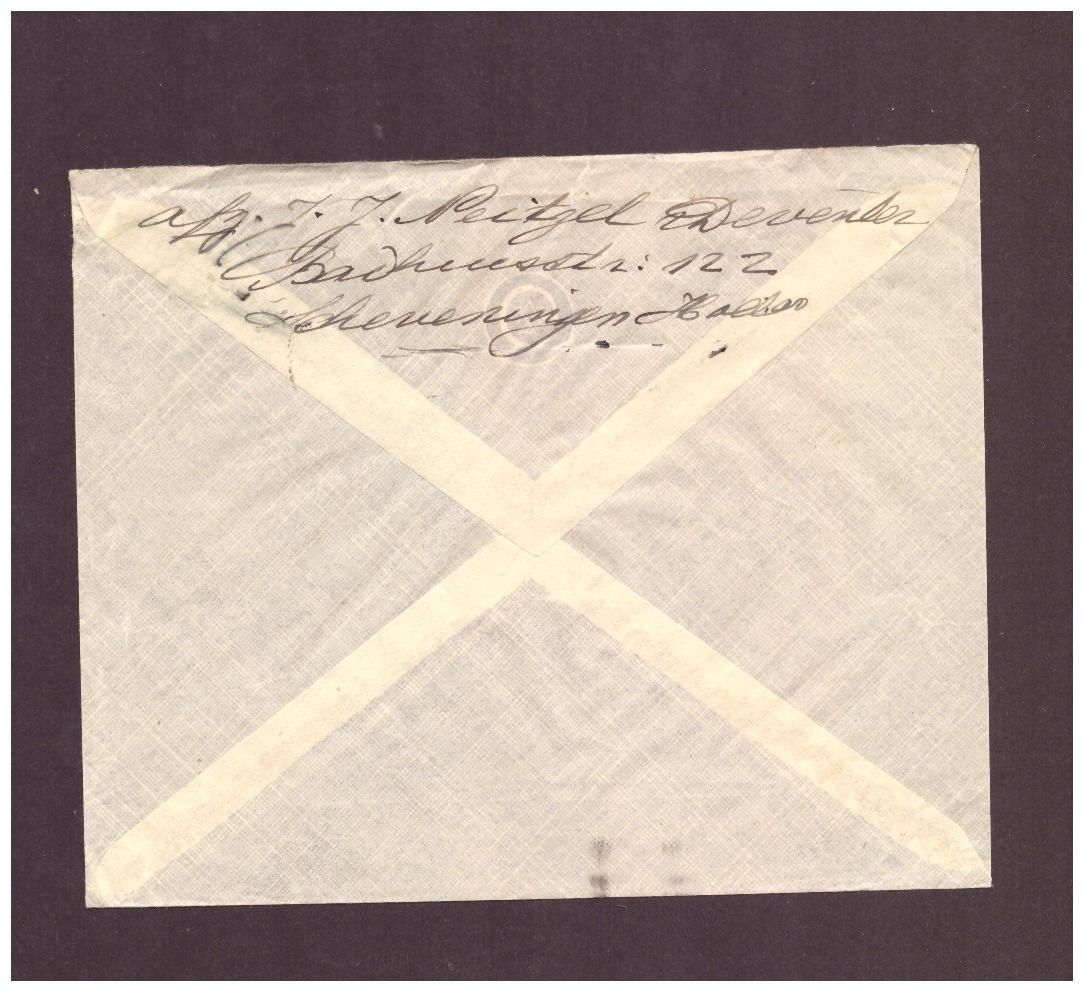 afz. J. J. Neitzel Deventer
Badhuisstr: 122
Scheveningen Holland